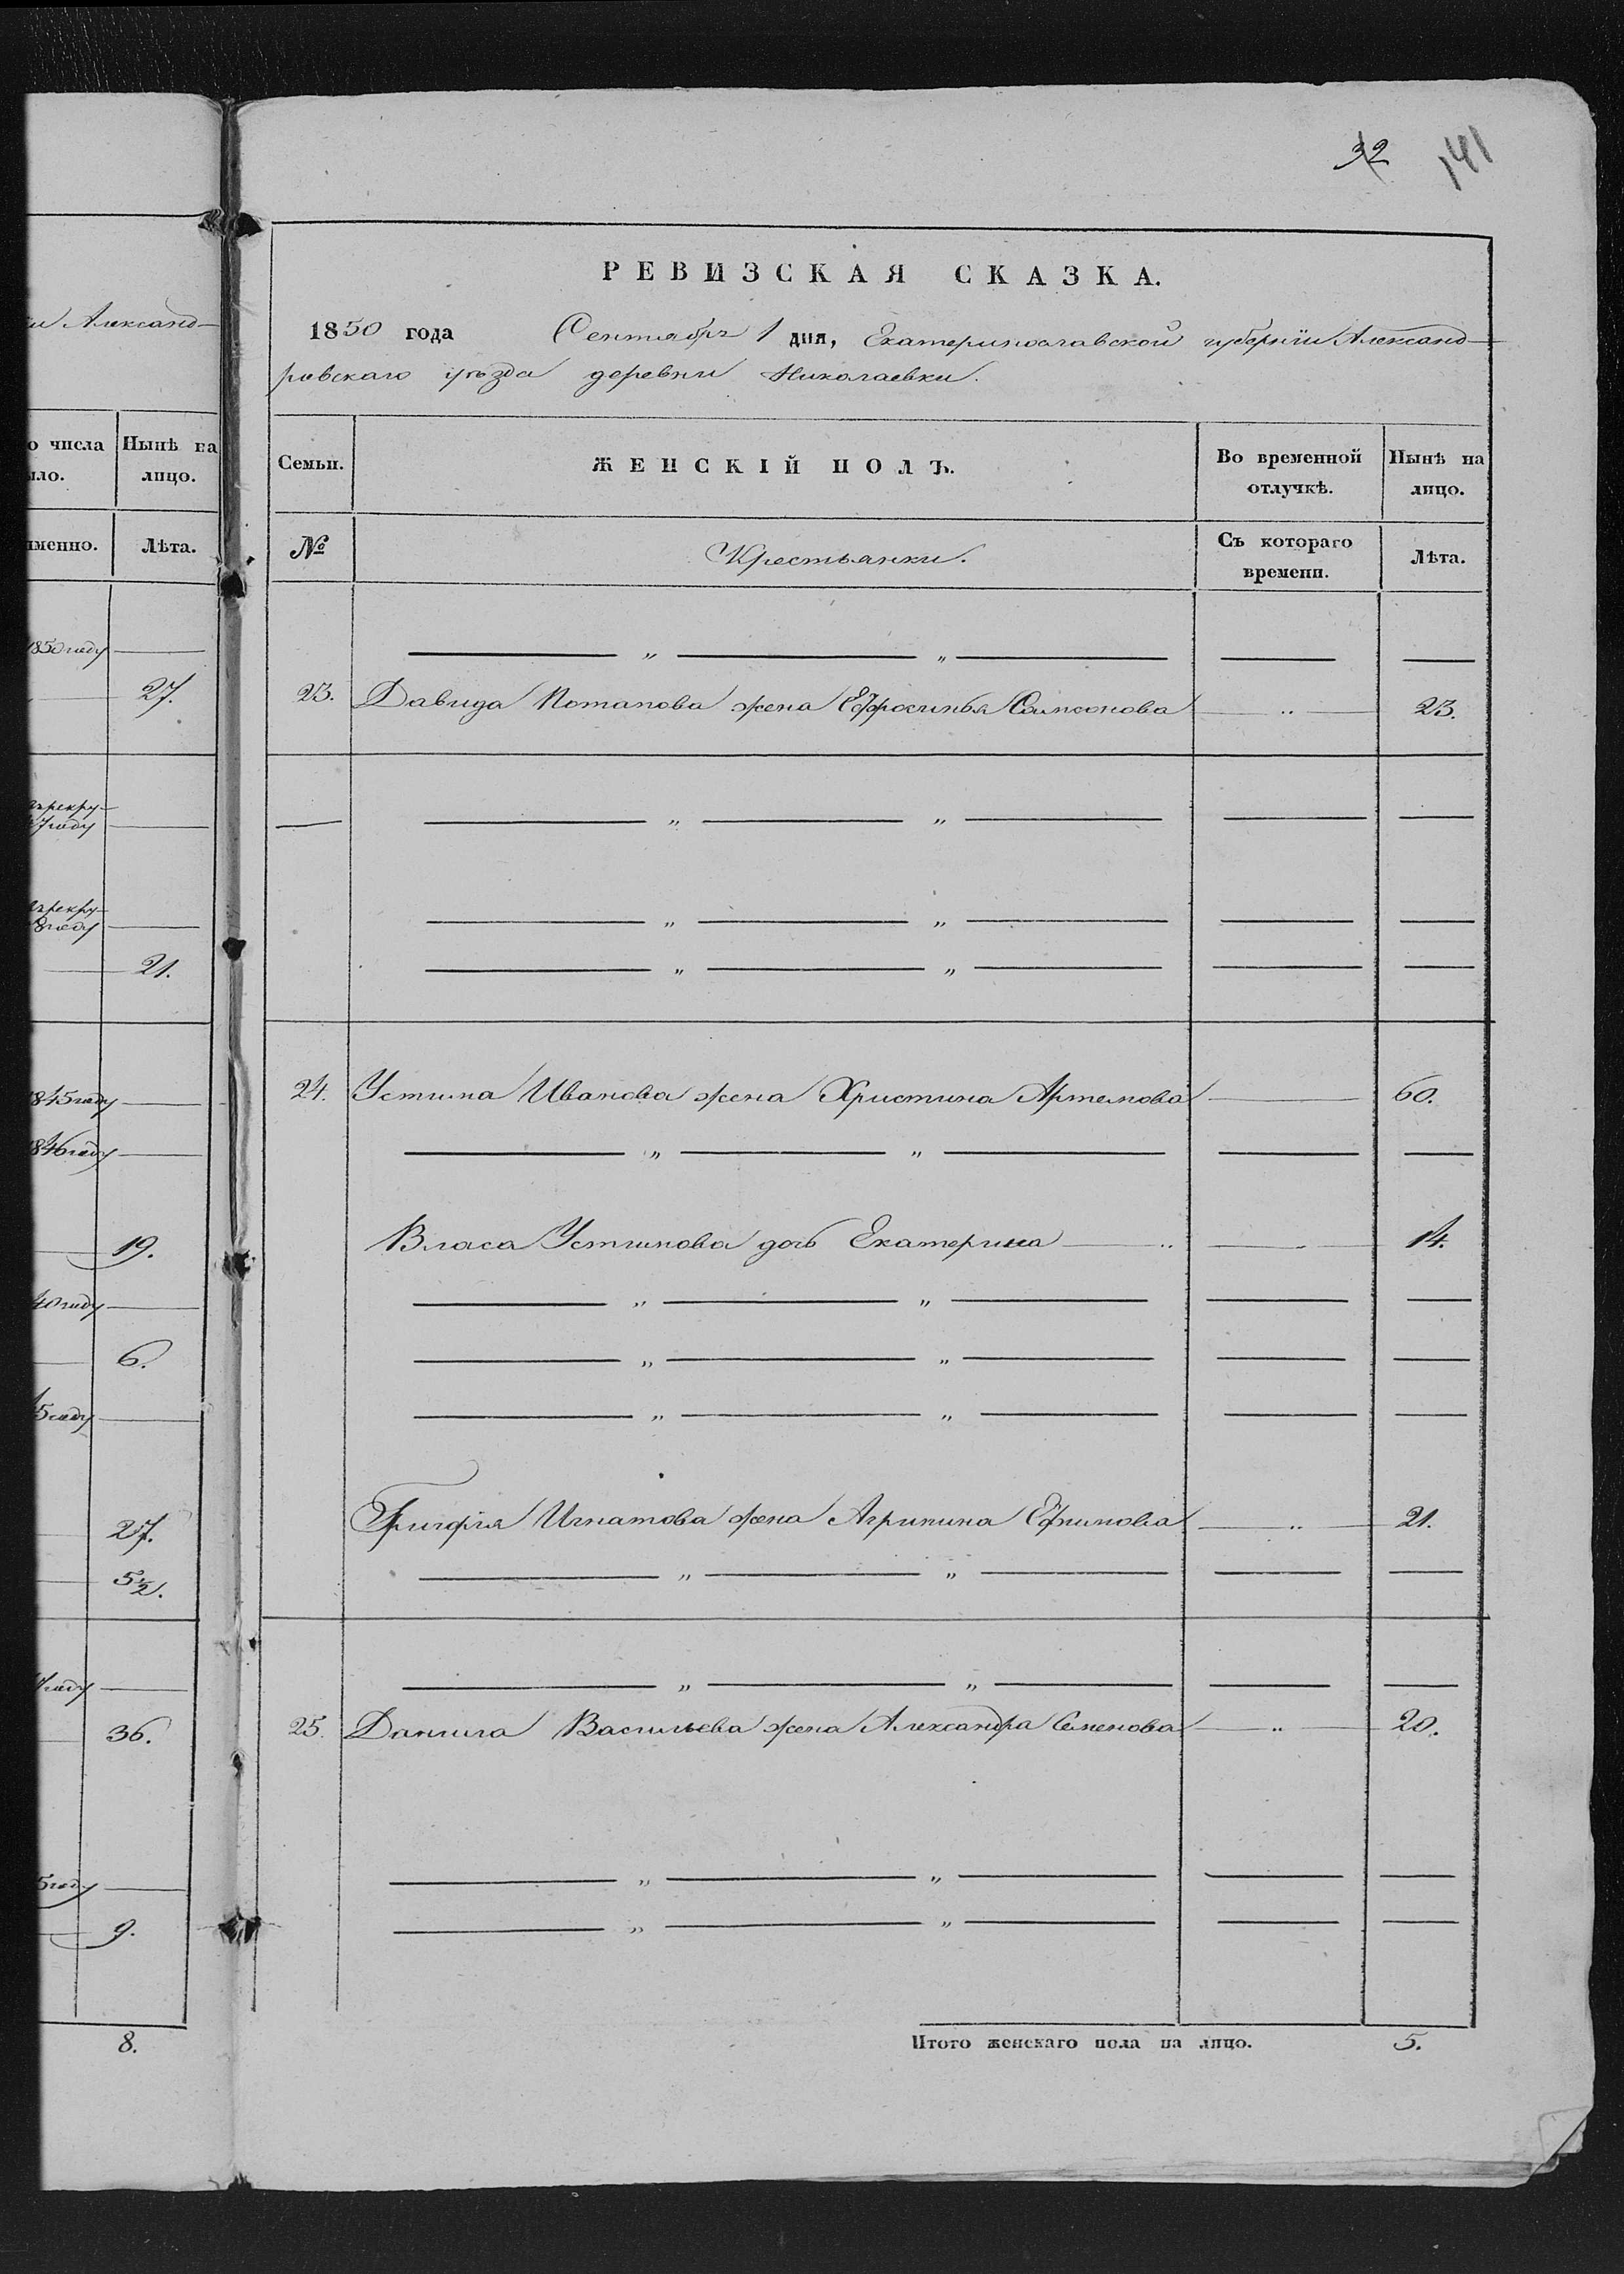 и Александ-
о числа Нынѣ на
ыло. лицо.
именно. Лѣта.
1850 году
27.
ъ рекру-
7 году
ъ рекру-
8 году
21.
1845 году
1846 году
19.
40 году
6.
5 году
27.
5½.
году
36.
5 году
9.
8.
32 141
РЕВИЗСКАЯ СКАЗКА.
1850 года Сентября 1 дня, Екатеринославской губерніи Александ-
ровскаго уѣзда деревни Николаевки.
Семьи. ЖЕНСКІЙ ПОЛЪ. Во временной Нынѣ на
отлучкѣ. лицо.
№ Крестьянки. Съ котораго Лѣта.
времени.
— „ — „ — — —
23. Давида Потапова жена Ефросинья Самсонова — „ — 23.
— — „ — „ — — —
— „ — „ — — —
— „ — „ — — —
24. Устина Иванова жена Христина Артемова — 60.
— „ — „ — — —
Власа Устинова дочь Екатерина — „ — 14.
— „ — „ — — —
— „ — „ — — —
— „ — „ — — —
Григорія Игнатова жена Агрипина Ефимова — „ — 21.
— „ — „ — — —
— „ — „ — — —
25. Данила Васильева жена Александра Семенова — „ — 20.
— „ — „ — — —
— „ — „ — — —
Итого женскаго пола на лицо. 5.